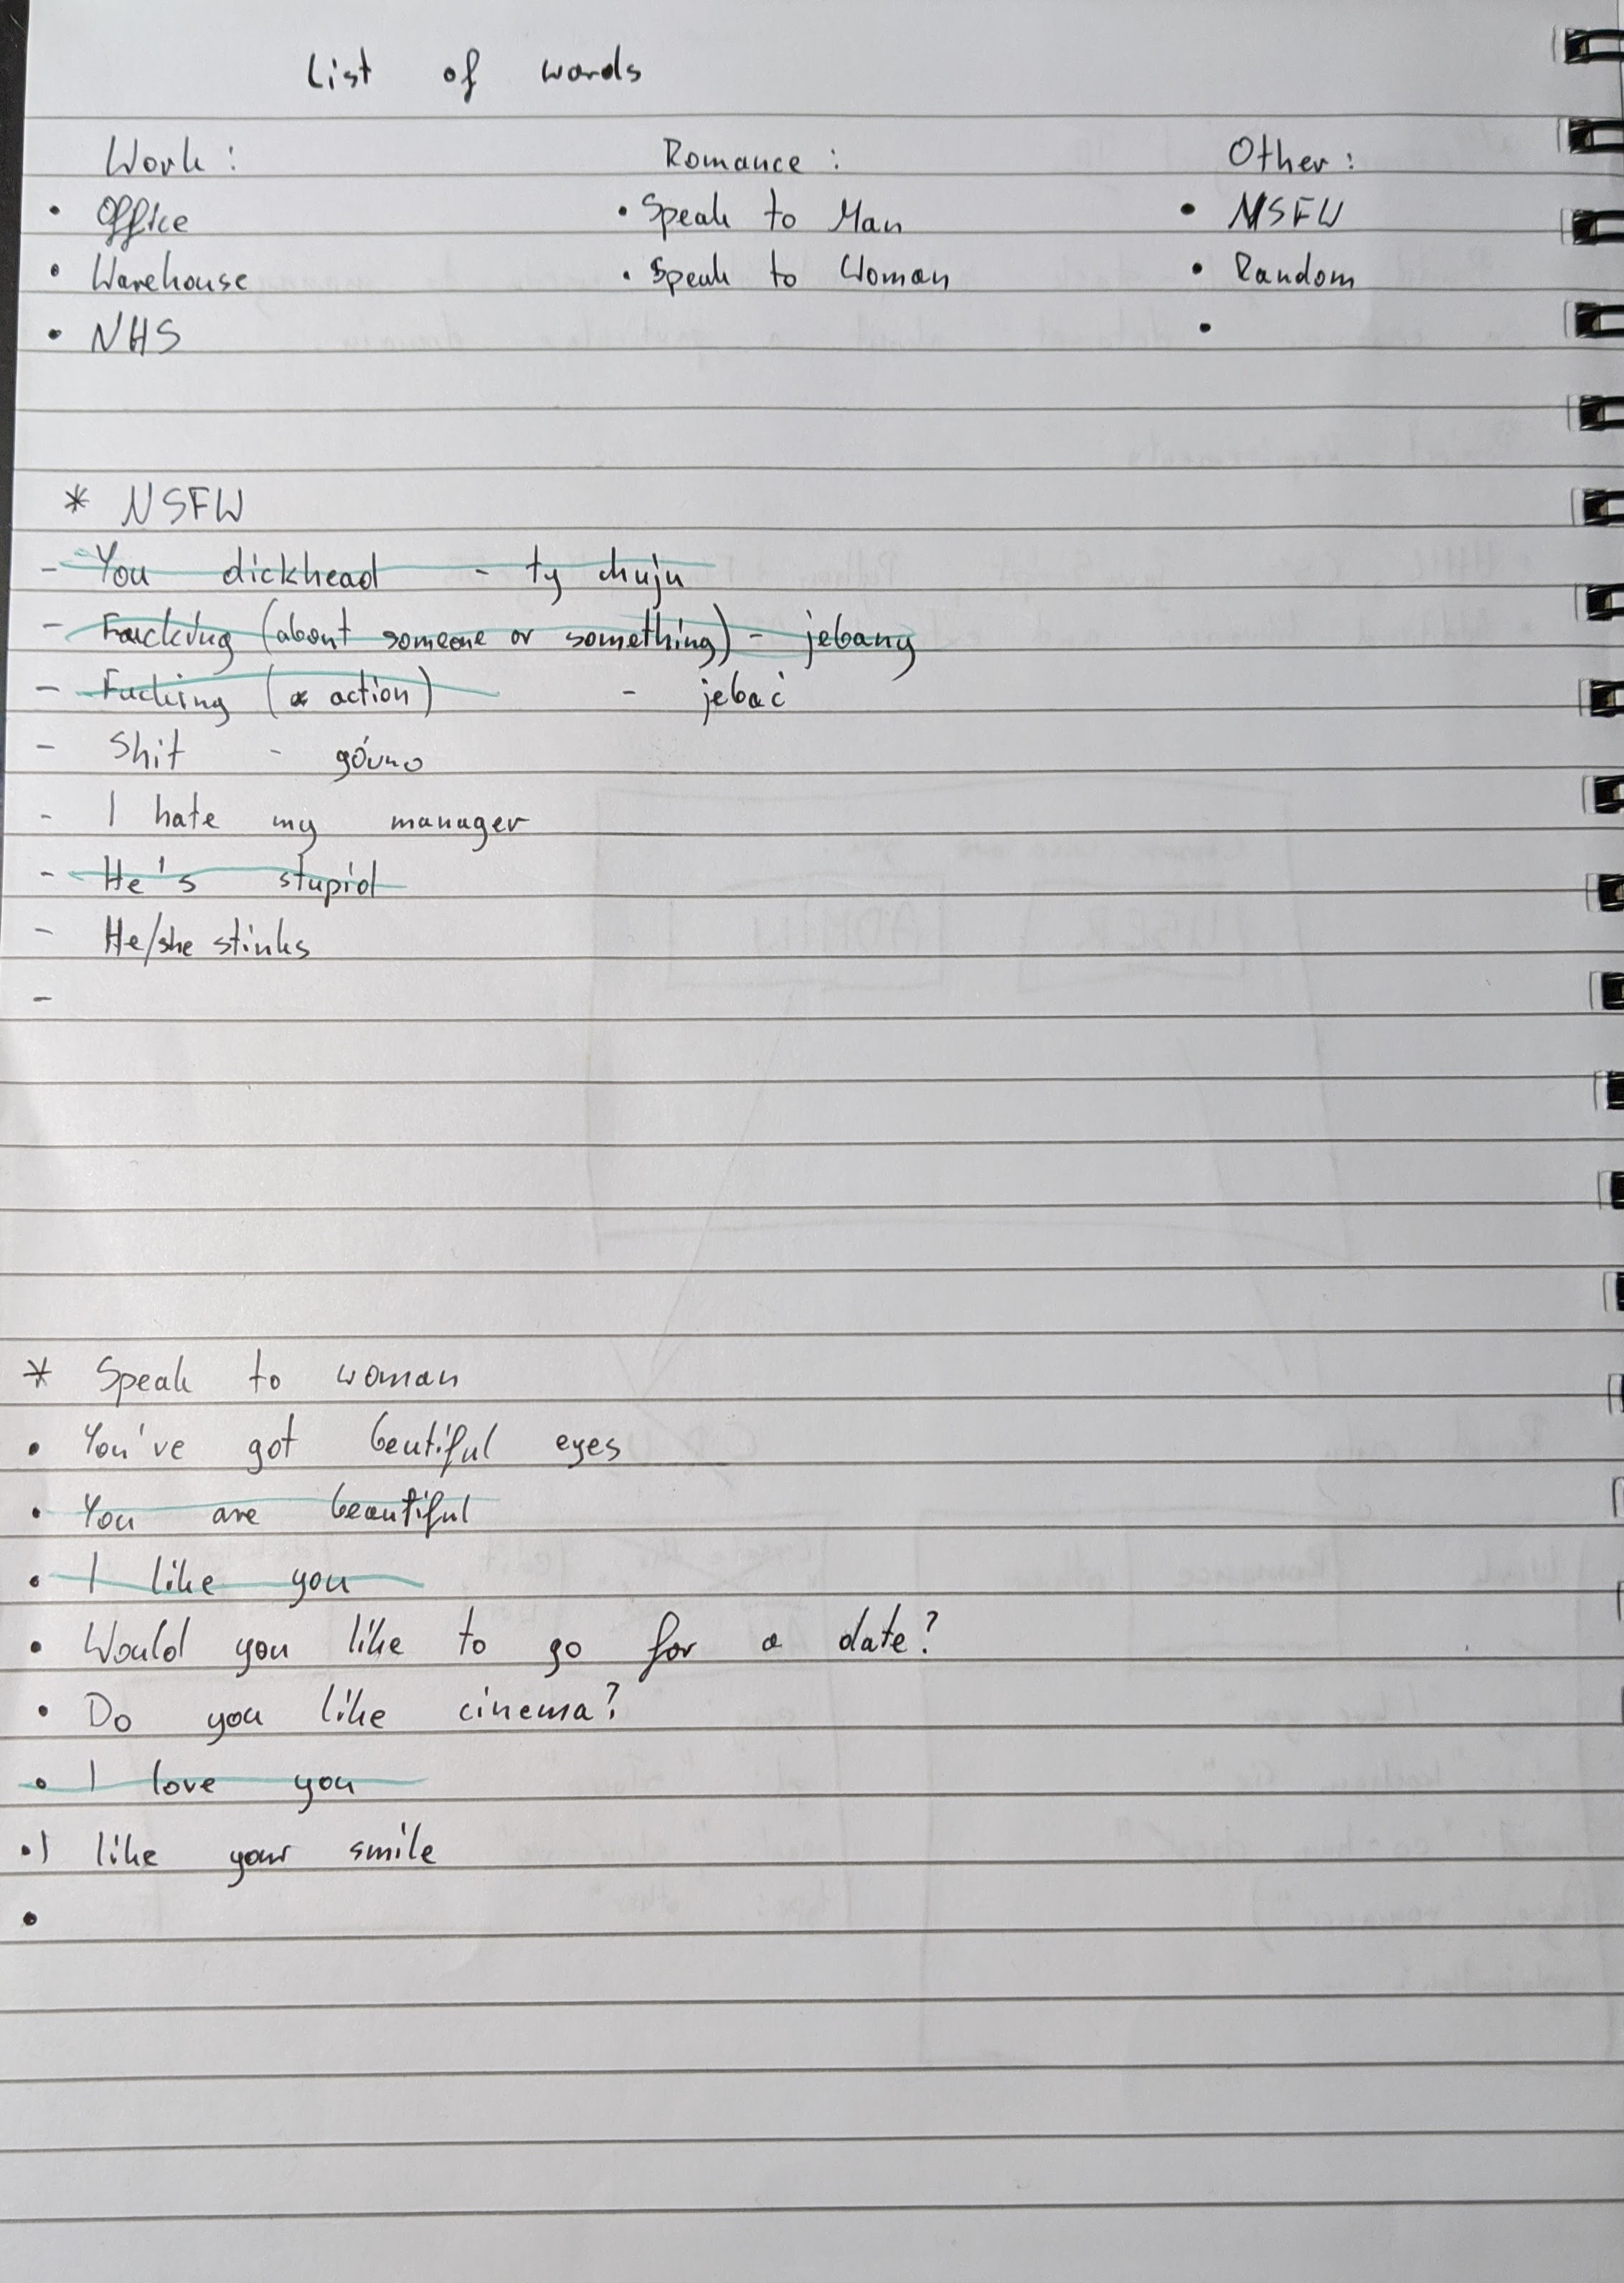 List of words
Work : Romance : Other :
• Office • Speak to Man • NSFW
• Warehouse • Speak to Woman • Random
• NHS •
* NSFW
- You dickhead - ty chuju
- Fucking (about someone or something) - jebany
- Fucking (a action) - jebać
- Shit - góvno
- I hate my manager
- He's stupid
- He/she stinks
-
* Speak to woman
• You've got beutiful eyes
• You are beautiful
• I like you
• Would you like to go for a date?
• Do you like cinema?
• I love you
• I like your smile
•